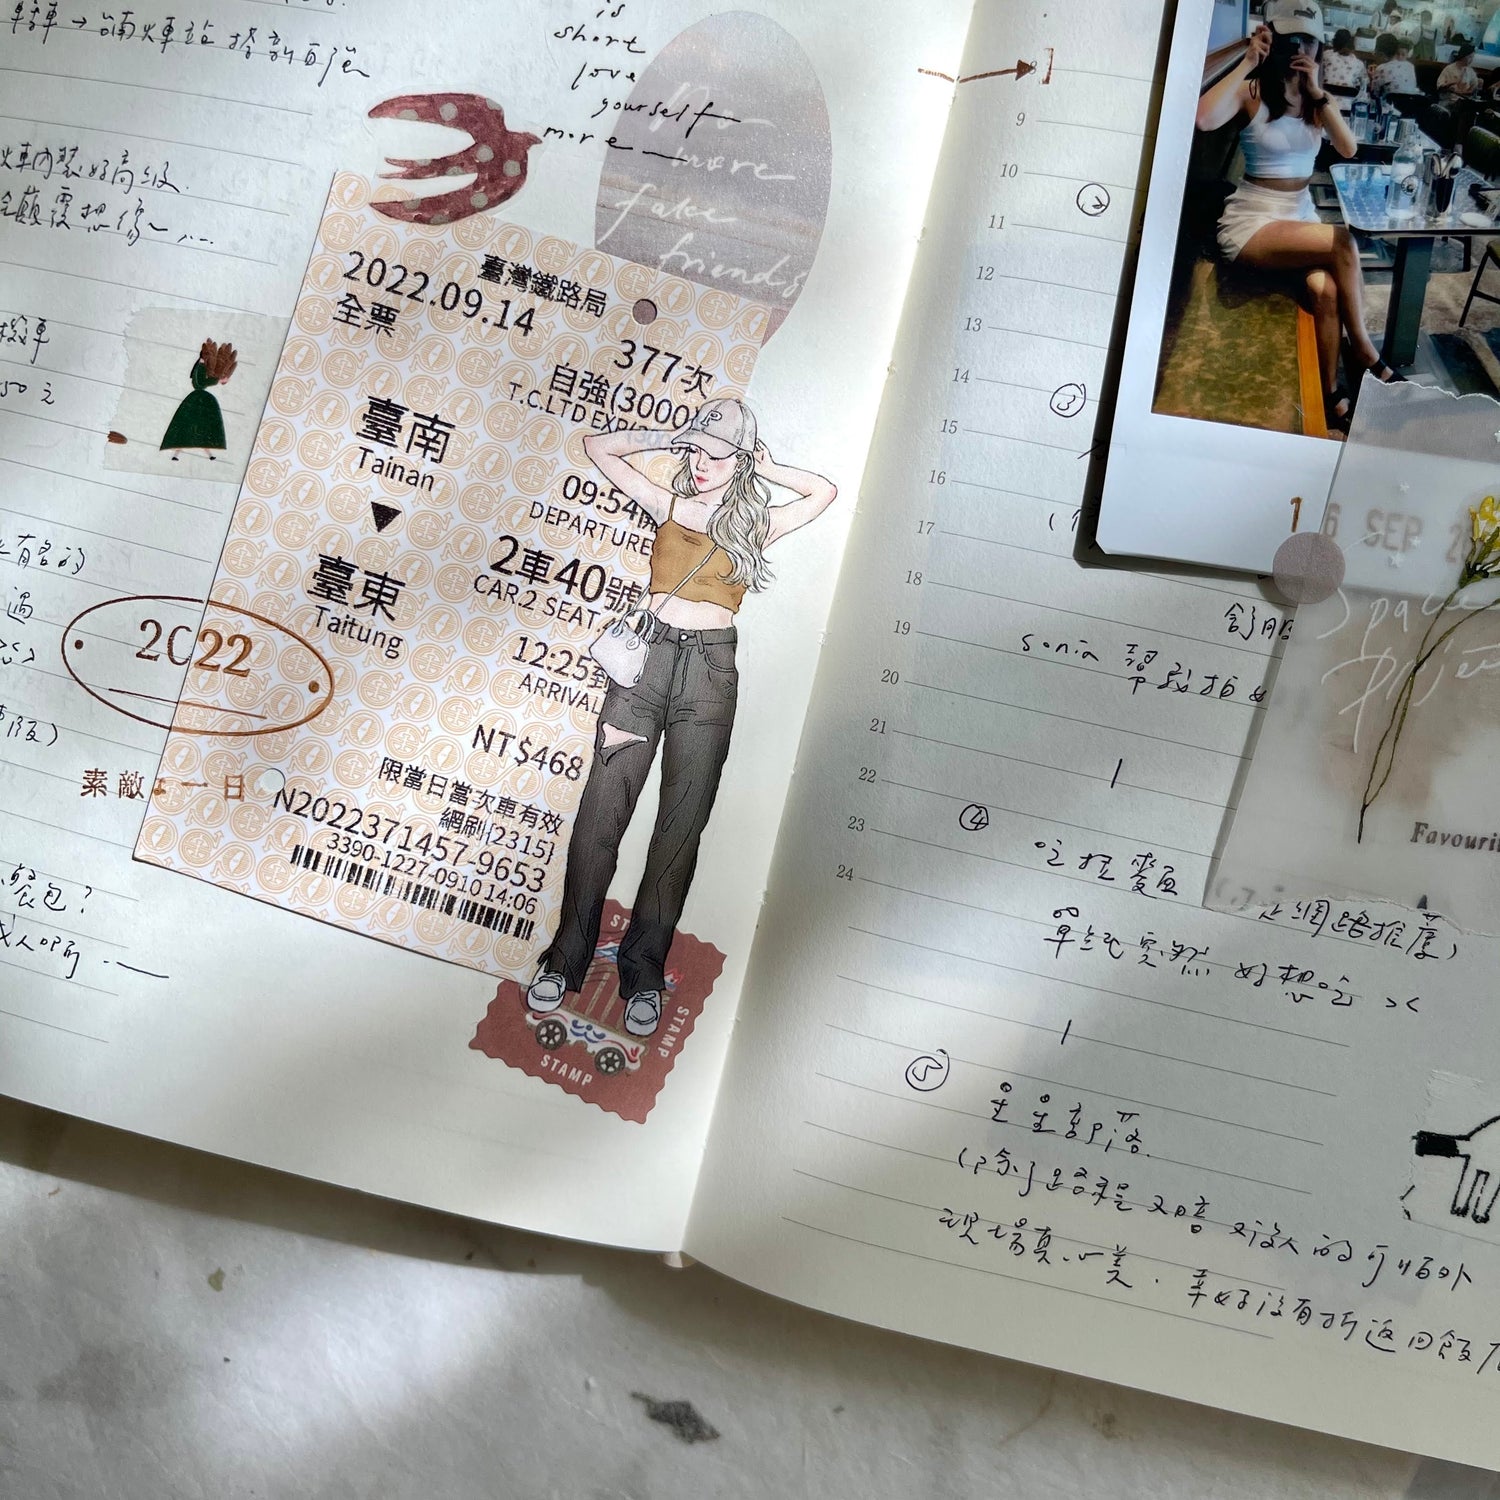 轉車 → 台南火車站 搭新自強
火車內裝好高級
機車
50 元
有名的
is
short
love
yourself
more
No
more
fake
friends
臺灣鐵路局
2022.09.14
全票
377次
自強(3000)
T.C.LTD EXP(3000)
臺南
Tainan
09:54開
DEPARTURE
臺東
Taitung
2車40號
CAR.2 SEAT.
12:25到
ARRIVAL
NT$468
限當日當次車有效
網刷{2315}
N2022371457-9653
3390-1227-0910 14:06
2022
素敵な一日
餐包？
STAMP
STAMP
P
8
9
10
11
12
13
14
15
16
17
18
19
20
21
22
23
24
②
③
舒服
sonia 幫我拍
④
吃拉麵
網路推薦）
單純突然 好想吃 ><
⑤
星星部落
（除了路程又暗又沒人的可怕外
現場真心美．幸好沒有折返回飯
16 SEP
Space
Project
Favourit